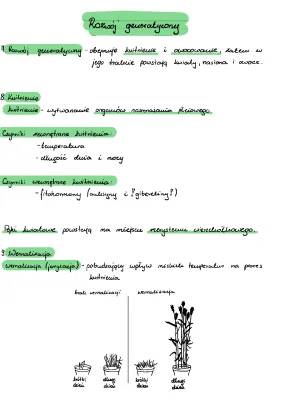 Rozwój generatywny
Rozwój generatywny - obejmuje kwitnienie i owocowanie, zatem w
jego trakcie powstają kwiaty, nasiona i owoce.
8. Kwitnienie
kwitnienie - wytwarzanie organów rozmnażania płciowego
Czynniki zewnętrzne kwitnienia
- temperatura
- długość dnia i nocy
Czynniki wewnętrzne kwitnienia:
- fitohormony (auksyny i ?gibereliny?)
Pąki kwiatowe powstają na miejscu merystemu wierzchołkowego.
9. Wernalizacja
wernalizacja (jaryzacja) - pobudzający wpływ niskich temperatur na proces
kwitnienia
brak wernalizacji wernalizacja
krótki dzień długi dzień krótki dzień długi dzień